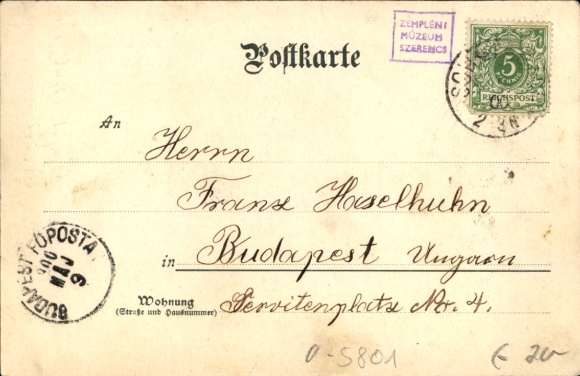 Postkarte
ZEMPLÉNI
MÚZEUM
SZERENCS
5
PFENNIG
REICHSPOST
00
2-3N
An
Herrn
Franz Haselhuhn
in Budapest Ungarn
Wohnung
(Straße und Hausnummer)
Servitenplatz Nr. 4.
BUDAPEST FŐPOSTA
900
MAJ
9
0-5801
€ 20